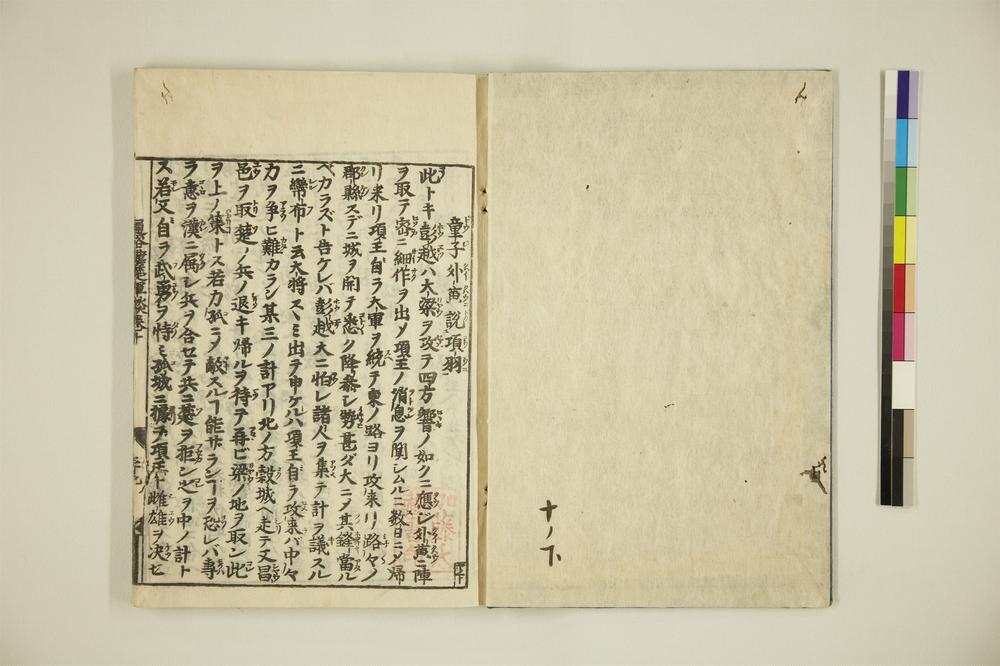 十ノ下
童子外黄説項羽
此トキ彭越ハ大梁ヲ攻テ四方響ノ如クニ應ジ外黄ニ陣
ヲ取テ密ニ細作ヲ出メ項王ノ消息ヲ聞シムルニ数日ニメ帰
リ来リ項王自ラ大軍ヲ統テ東ノ路ヨリ攻来リ路々ノ
郡縣スデニ城ヲ開テ悉ク降参シ勢甚ダ大ニメ其鋒當ル
ベカラズト告ケレバ彭越大ニ怕レ諸人ヲ集テ計ヲ議スル
ニ欒布ト云大将スヽミ出テ申ケルハ項王自ラ攻来バ中々
力ヲ争ヒ難カラン某三ノ計アリ北ノ方穀城ヘ走テ又昌
邑ヲ取楚ノ兵ノ退キ帰ルヲ待テ再ビ梁ノ地ヲ取ン此
ヲ上ノ策トス若力孤ニメ敵スルフ能サランフヲ恐レバ専
ラ意ヲ漢ニ属シ兵ヲ合セテ共ニ楚ヲ拒ン是ヲ中ノ計ト
ス若又自ラ武勇ヲ恃ミ孤城ニ據テ項王ト雌雄ヲ决セ
通俗漢楚軍談巻十